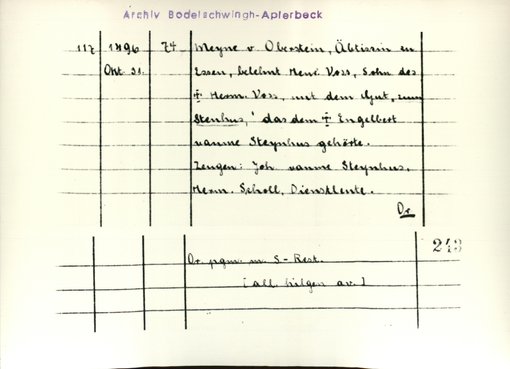 Archiv Bodelschwingh-Aplerbeck
117 1496 74 Meyne v. Oberstein, Äbtissin in
Okt. 31. Essen, belehnt Henr. Voss, Sohn des
‡ Herm. Voss, mit dem Gut, zum
Stenhus, das dem ‡ Engelbert
vanme Steynhus gehörte.
Zeugen: Joh. vanme Steynhus,
Herm. Scholl, Dienstleute.
Or.
243
Or. pgm. m. S-Rest.
[all. hilgen av.]